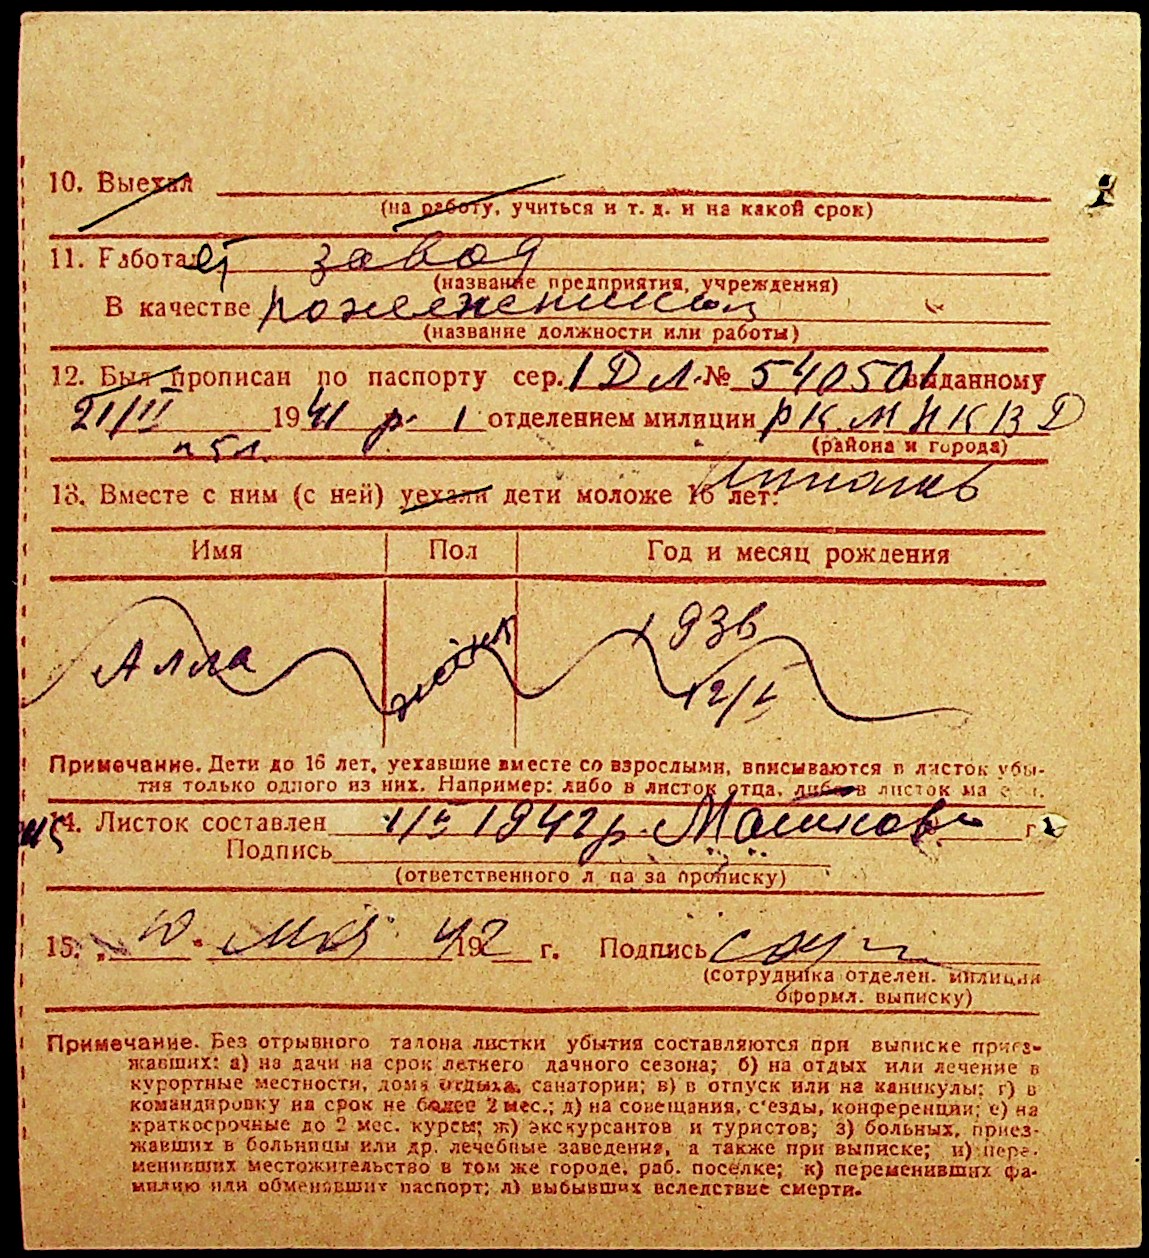 10. Выехал
(на работу, учиться и т. д. и на какой срок)
11. Работает завод
(название предприятия, учреждения)
В качестве
(название должности или работы)
12. Был прописан по паспорту сер. I ДЛ № 540501 выданному
21/II 1941 р. 1 отделением милиции РКМ НКВД
(района и города)
на 5 л.
13. Вместе с ним (с ней) уехали дети моложе 16 лет:
Имя Пол Год и месяц рождения
Алла 1936
12/V
Примечание. Дети до 16 лет, уехавшие вместе со взрослыми, вписываются в листок убы-
тия только одного из них. Например: либо в листок отца, либо в листок ма
14. Листок составлен 1/V 1942 р. г.
Подпись
(ответственного лица за прописку)
15. „10" мая 1942 г. Подпись
(сотрудника отделен. милиции
оформл. выписку)
Примечание. Без отрывного талона листки убытия составляются при выписке приез-
жавших: а) на дачи на срок летнего дачного сезона; б) на отдых или лечение в
курортные местности, дома отдыха, санатории; в) в отпуск или на каникулы; г) в
командировку на срок не более 2 мес.; д) на совещания, с'езды, конференции; е) на
краткосрочные до 2 мес. курсы; ж) экскурсантов и туристов; з) больных, приез-
жавших в больницы или др. лечебные заведения, а также при выписке; и) пере-
менивших местожительство в том же городе, раб. поселке; к) переменивших фа-
милию или обменявших паспорт; л) выбывших вследствие смерти.